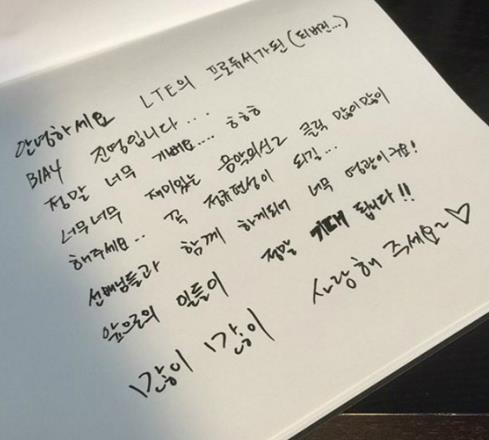 안녕하세요 LTE의 프로듀서가된 (되버린...)
B1A4 진영입니다...
정말 너무 기뻐요.... ㅎㅎㅎ
너무너무 재미있는 음악의신2 클릭 많이많이
해주세요.. 꼭 정규편성이 되길...
선배님들과 함께 하게되어 너무 영광이구요!
앞으로의 일들이 정말 기대 됩니다!!
많이 많이 사랑해 주세요~♡